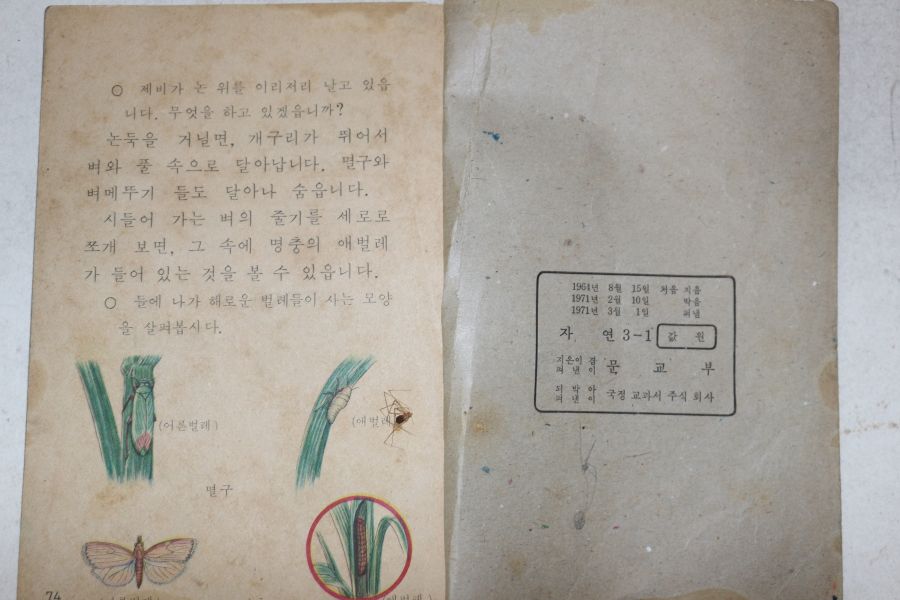 ○ 제비가 논 위를 이리저리 날고 있읍
니다. 무엇을 하고 있겠읍니까?
논둑을 거닐면, 개구리가 뛰어서
벼와 풀 속으로 달아납니다. 멸구와
벼메뚜기 들도 달아나 숨읍니다.
시들어 가는 벼의 줄기를 세로로
쪼개 보면, 그 속에 명충의 애벌레
가 들어 있는 것을 볼 수 있읍니다.
○ 들에 나가 해로운 벌레들이 사는 모양
을 살펴봅시다.
(어른벌레)
(애벌레
멸구
(애벌레)
74
1964년 8월 15일 처음 지음
1971년 2월 10일 박음
1971년 3월 1일 펴냄
자 연 3-1 값 원
지은이 겸
펴낸이 문 교 부
되박아
펴낸이 국정 교과서 주식 회사